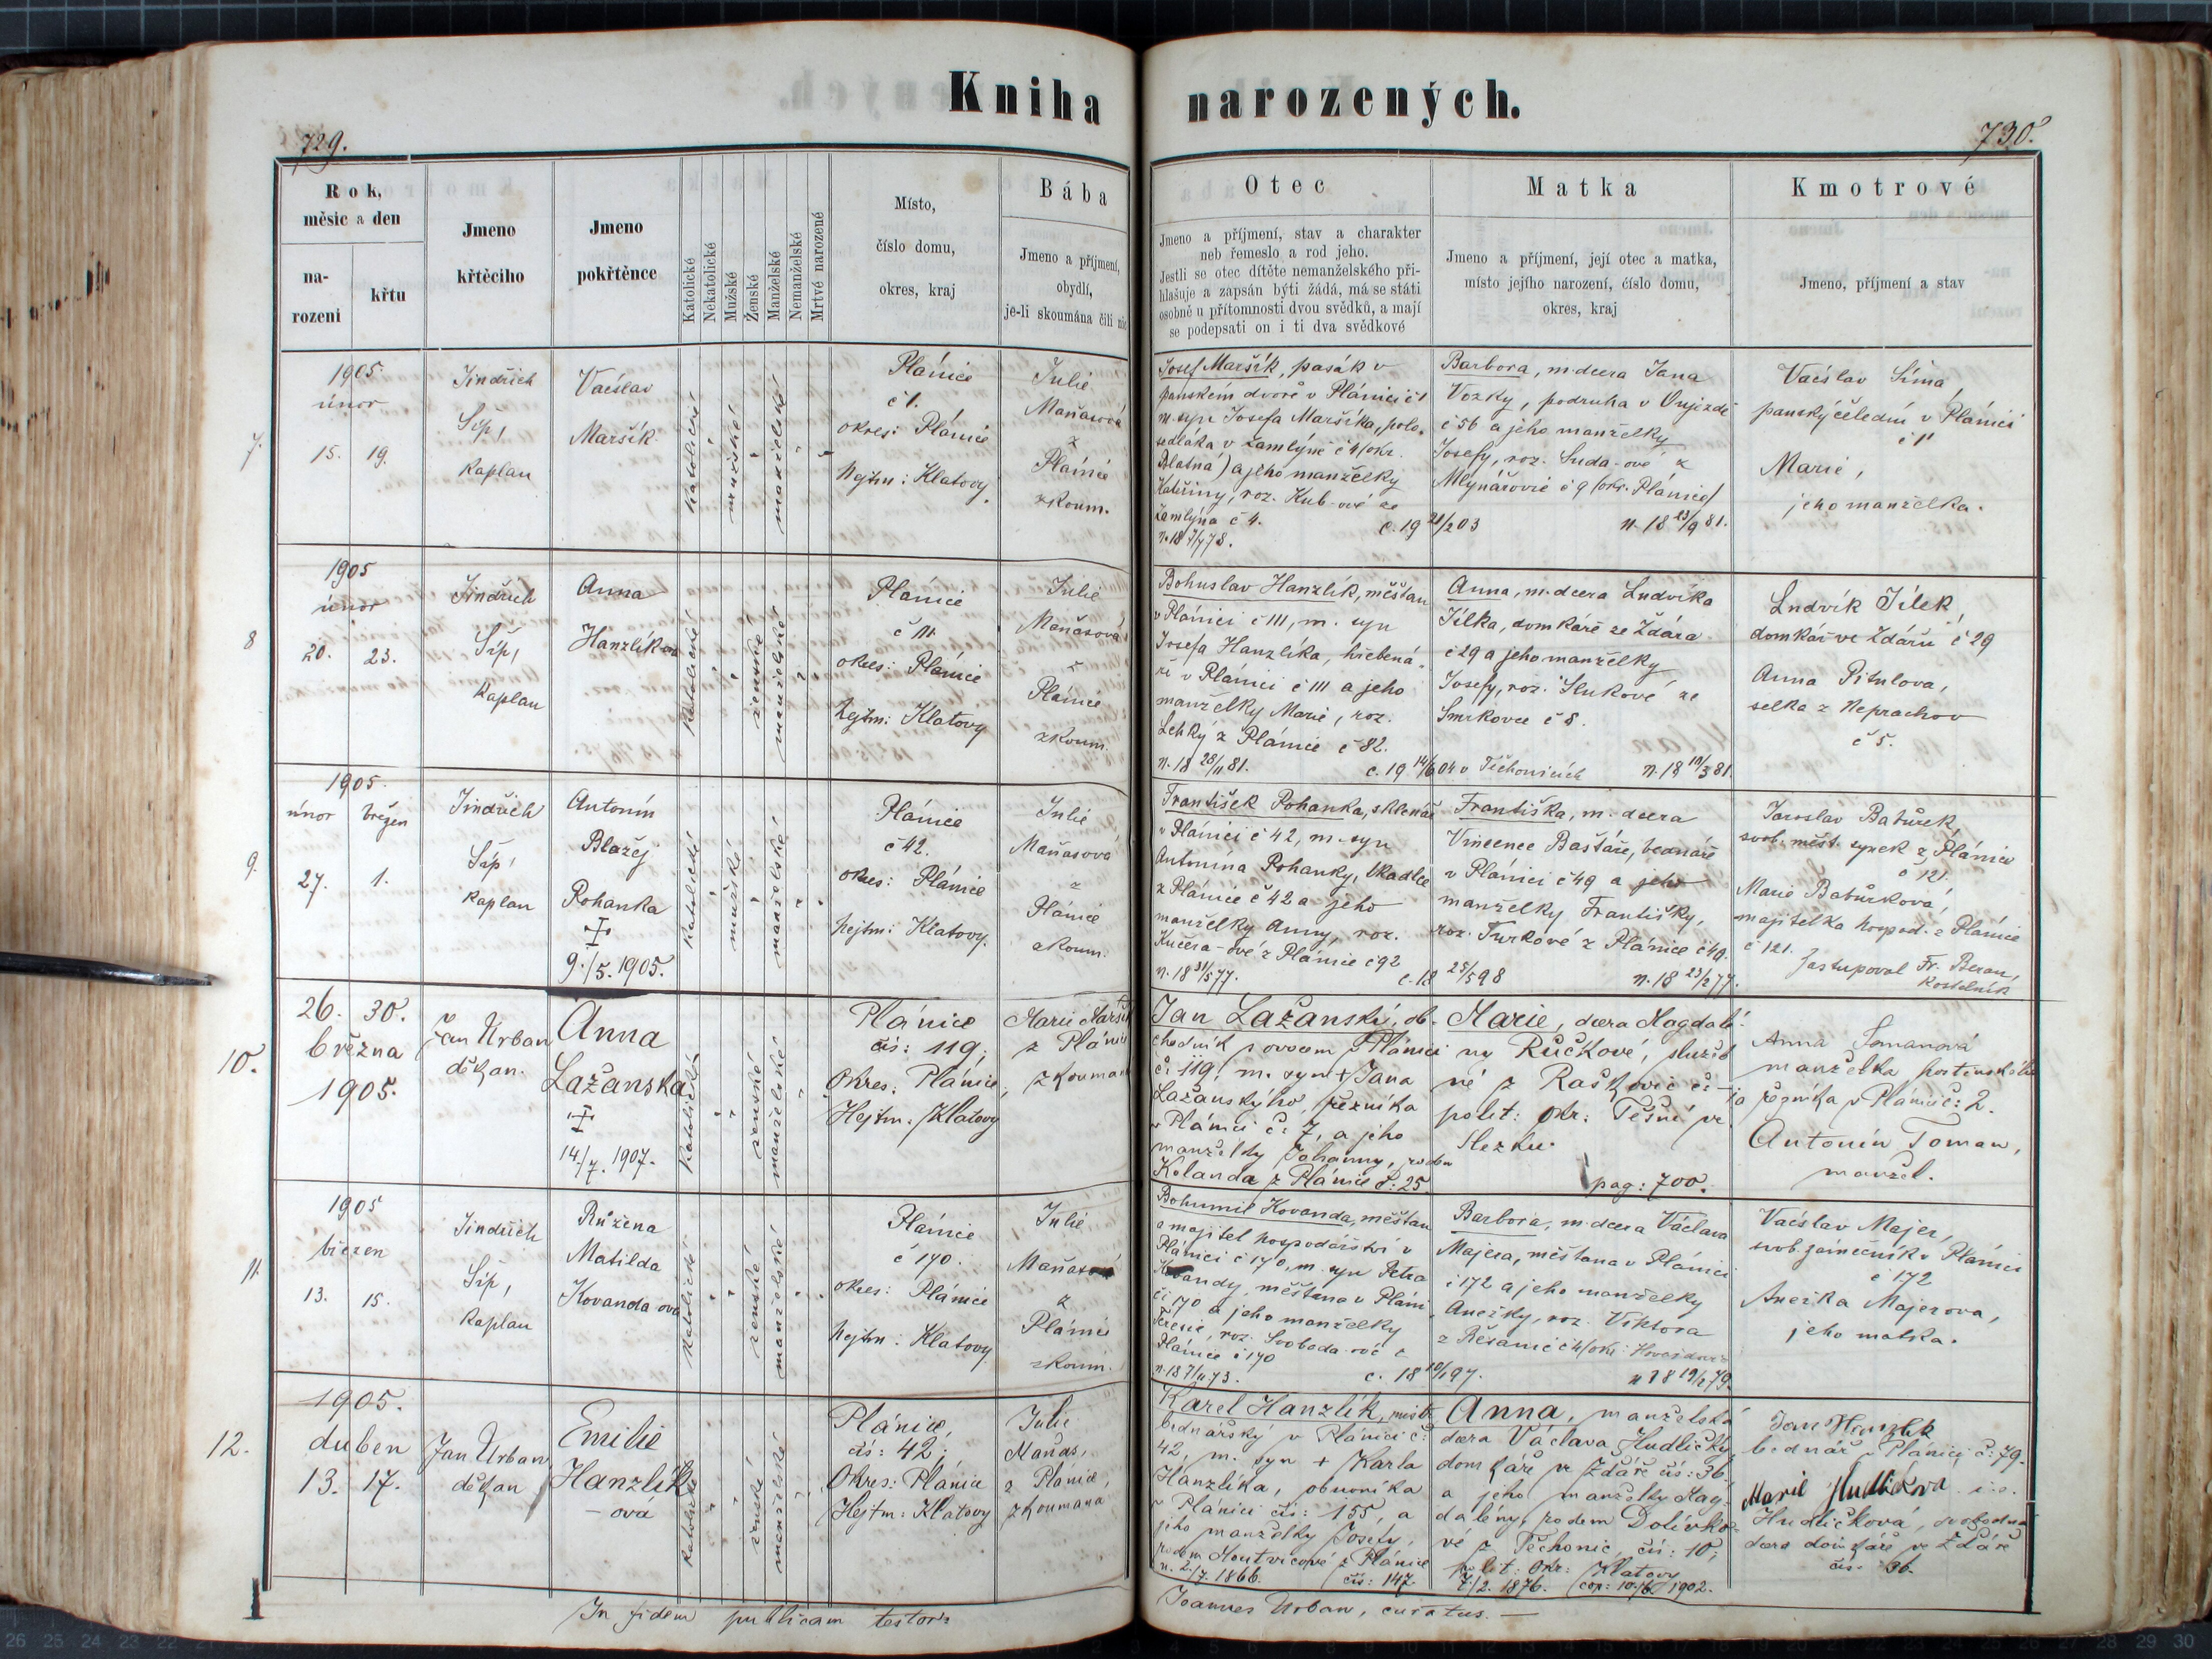 Kniha narozených.
729.
730.
Rok,
měsíc a den
na-
rozeni
křtu
Jmeno
křtěcího
Jmeno
pokřtěnce
Katolické
Nekatolické
Mužské
Ženské
Manželské
Nemanželské
Mrtvé narozené
Místo,
číslo domu,
okres, kraj
Bába
Jmeno a příjmení,
obydlí,
je-li skoumána čili nic
Otec
Jmeno a příjmení, stav a charakter
neb řemeslo a rod jeho.
Jestli se otec dítěte nemanželského při-
hlašuje a zapsán býti žádá, má se státi
osobně u přítomnosti dvou svědků, a mají
se podepsati on i ti dva svědkové
Matka
Jmeno a příjmení, její otec a matka,
místo jejího narození, číslo domu,
okres, kraj
Kmotrové
Jmeno, příjmení a stav
7.
1905
únor
15. 19.
Jindřich
Šíp,
kaplan
Václav
Maršík
katolické
mužské
manželské
Plánice
č 1.
okres: Plánice
hejtm: Klatovy.
Julie
Maňasová
z
Plánice
zkoum.
Josef Maršík, pasák v
panském dvoře v Plánici č 1
m. syn Josefa Maršíka, polo-
sedláka v Zamlýně č 4 (okr.
Blatná) a jeho manželky
Kateřiny, roz. Kub-ové ze
Zamlýna č 4.
c. 19 21/2 03
Barbora, m. dcera Jana
Vozky, podruha v Oujezdě
č 56 a jeho manželky
Josefy, roz. Suda-ové z
Mlynářovic č 9 (okr. Plánice)
n. 18 23/9 81.
Václav Šíma,
panský čeledín v Plánici
č 1
Marie,
jeho manželka.
8
1905
únor
20. 23.
Jindřich
Šíp,
kaplan
Anna
Hanzlíkova
katolické
ženské
manželské
Plánice
č 111.
okres: Plánice
hejtm: Klatovy
Julie
Maňasová
z
Plánice
zkoum.
Bohuslav Hanzlík, měšťan
v Plánici č 111, m. syn
Josefa Hanzlíka, hřebená-
ře v Plánici č 111 a jeho
manželky Marie, roz.
Lehký z Plánice č 82.
n. 18 28/11 81.
c. 19 14/6 04 v Těchonicích
Anna, m. dcera Ludvíka
Jílka, domkáře ze Ždára
č 29 a jeho manželky
Josefy, roz. Slukové ze
Smrkovce č 8.
n. 18 10/3 81.
Ludvík Jílek,
domkář ve Ždáru č 29
Anna Pitulova,
selka z Neprachov
č 5.
9.
1905.
únor březen
27. 1.
Jindřich
Šíp,
kaplan
Antonín
Blažej
Pohanka
9./5. 1905.
katolické
mužské
manželské
Plánice
č 42.
okres: Plánice
hejtm: Klatovy.
Julie
Maňasová
z
Plánice
zkoum.
František Pohanka, sklenář
v Plánici č 42, m. syn
Antonína Pohanky, tkadlce
z Plánice č 42 a jeho
manželky Anny, roz.
Kučera-ové z Plánice č 92
n. 18 31/5 77.
c. 18 25/5 98
Františka, m. dcera
Vincence Baštáře, bednáře
v Plánici č 49 a jeho
manželky Františky,
roz. Turkové z Plánice č 49.
n. 18 23/2 77.
Jaroslav Batůrek,
svob. měšť. synek z Plánice
č 121.
Marie Batůrková,
majitelka hospod. z Plánice
č 121.
Zastupoval Fr. Beran,
kostelník
10.
26. 30.
března
1905.
Jan Urban
děkan.
Anna
Lažanská
14./7. 1907.
katolické
ženské
manželské
Plánice
čís: 119;
Okres: Plánice,
Hejtm. Klatovy
Marie Marší
z Plánice
zkoumaná
Jan Lažanský, ob-
chodník s ovocem v Plánici
č: 119, m. syn + Jana
Lažanského, řezníka
v Plánici č: 7, a jeho
manželky Johanny, rodem
Kolanda z Plánice č: 25.
Marie, dcera Magdalé-
ny Růčkové, služeb
né z Raškovic č: –
polit: okr: Těšín ve
Slezku.
pag: 700.
Anna Tomanová
manželka hostinského
a řezníka v Plánici č: 2.
Antonín Toman,
manžel.
11.
1905
březen
13. 15.
Jindřich
Šíp,
kaplan
Růžena
Matilda
Kovanda ova
katolické
ženské
manželské
Plánice
č 170.
okres: Plánice
hejtm: Klatovy
Julie
Maňasová
z
Plánice
zkoum.
Bohumil Kovanda, měšťan
a majitel hospodářství v
Plánici č 170, m. syn Petra
Kovandy, měšťana v Pláni-
či 170 a jeho manželky
Terezie, roz. Svoboda-ové z
Plánice č 170
n. 18 7/11 73.
c. 18 10/1 97.
Barbora, m. dcera Václava
Majera, měšťana v Plánici
č 172 a jeho manželky
Anežky, roz. Viktora
z Řesanic č 4 (okr.
n 18 19/2 79.
Václav Majer,
svob. zámečník v Plánici
č 172
Anežka Majerova,
jeho matka.
12.
1905.
duben
13. 17.
Jan Urban
děkan
Emilie
Hanzlík
– ová
katolické
ženské
manželské
Plánice,
čís: 42;
Okres: Plánice
Hejtm: Klatovy
Julie
Maňas,
z Plánice,
zkoumaná
Karel Hanzlík, mistr
bednářský v Plánici č:
42, m. syn + Karla
Hanzlíka, obuvníka
v Plánici čís: 155, a
jeho manželky Josefy,
rodem Houtvicové z Plánice
n. 2./7. 1866. čís: 147.
Anna, manželská
dcera Václava Hudličky,
domkáře ve Ždáře čís: 36
a jeho manželky Mag-
dalény, rodem Dolívko-
vé z Těchonic, čís: 10;
polit: okr: Klatovy
7/2. 1876. cop: 10./6. 1902.
Jan Hanzlik
bednář v Plánici č: 79.
Marie Hudličkova i. e.
Hudličková, svobodná
dcera domkáře ve Ždáře
čís: 36.
In fidem publicam testor:
Joannes Urban, curatus. —